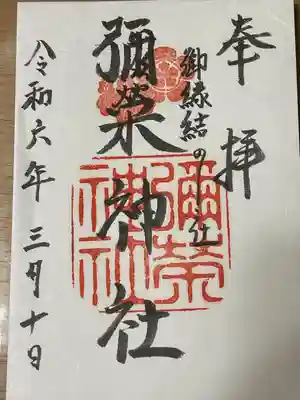 奉拝
御縁結の社
彌榮神社
彌榮
神社
令和六年三月十日